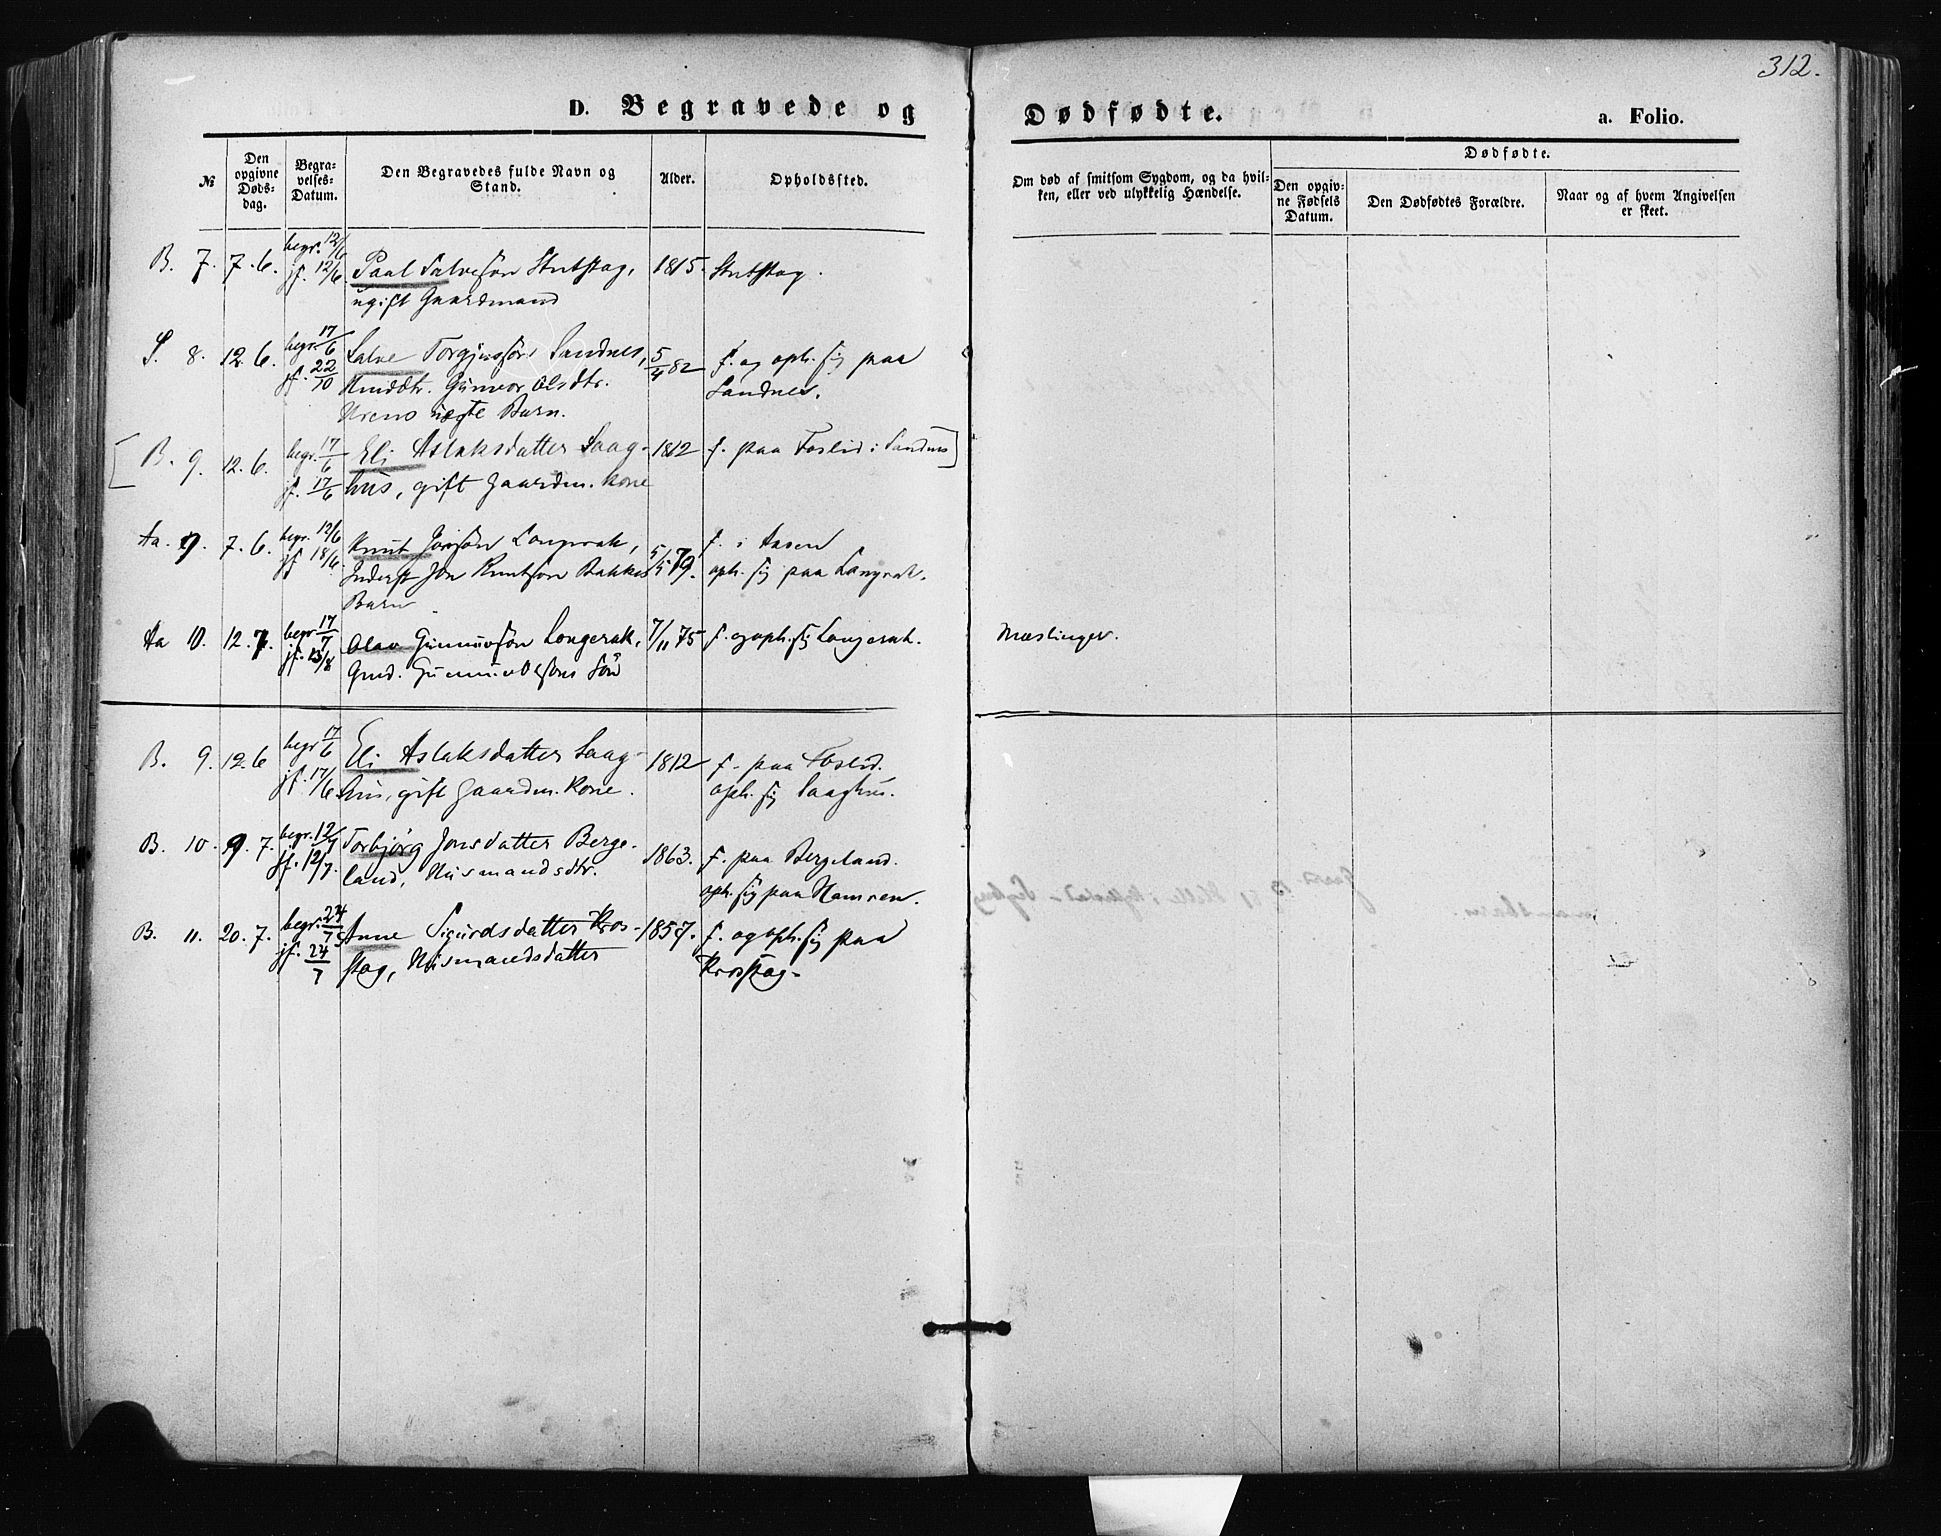 312.
D. Begravede og Dødfødte. a. Folio.
№
Den opgivne Døds-dag.
Begra-velses-Datum.
Den Begravedes fulde Navn og Stand.
Alder.
Opholdssted.
Om død af smitsom Sygdom, og da hvil-
ken, eller ved ulykkelig Hændelse.
Dødfødte.
Den opgiv-ne Fødsels Datum.
Den Dødfødtes Forældre.
Naar og af hvem Angivelsen er skeet.
begr. 12/6
B. 7. 7. 6. jf. 12/6 Paal Salvesøn Stutstog, 1815. Stutstog.
ugift Gaardmand
S. 8. 12. 6. begr. 17/6 Salve Torgjussøn Sandnes, 5/4 82 f. og oph. sig paa
jf. 22/10 Gunvor Olsdtr. Sandnes.
Urens uegte Barn.
[B. 9. 12. 6. begr. 17/6 Eli Aslaksdatter Saag- 1812 f. paa Foslid i Sandnes]
jf. 17/6 hus, gift Gaardm. Kone
Aa. 9. 7. 6. begr. 12/6 Knut Jonsøn Langerak, 5/5 79. f. i Aasen
jf. 18/6 Inderst Jon Knutsøn Bakkes oph. sig paa Langerak.
Barn
Aa 10. 12. 7. begr. 17/7 Olav Gunnuvsøn Longerak, 7/11 75 f. og oph. sig Langerak. Mæslinger.
jf. 13/8 Grmd. Gunnuv Olsøns Søn
B. 9. 12. 6 begr 17/6 Eli Aslaksdatter Saag- 1812 f. paa Foslid.
jf. 17/6 hus, gift Gaardm. Kone. oph. sig Saaghus.
B. 10. 9. 7. begr. 12/7 Torbjørg Jonsdatter Berge- 1863. f. paa Bergeland.
jf. 12/7. land, Husmandsdtr. oph. sig paa Hamren.
B. 11. 20. 7. begr. 24/7 Anne Sigurdsdatter Kros- 1857. f. og oph. sig paa
jf. 24/7 stog, Husmandsdatter Krosstog.